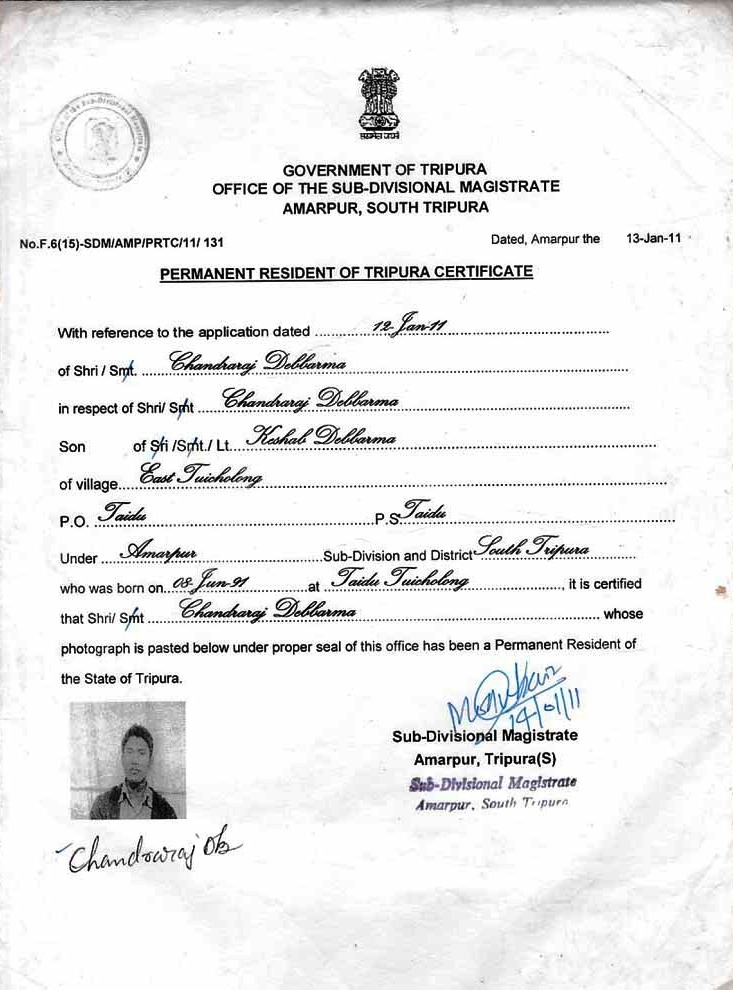 Office of the Sub-Divisional Magistrate
GOVERNMENT OF TRIPURA
OFFICE OF THE SUB-DIVISIONAL MAGISTRATE
AMARPUR, SOUTH TRIPURA
No.F.6(15)-SDM/AMP/PRTC/11/ 131 Dated, Amarpur the 13-Jan-11
PERMANENT RESIDENT OF TRIPURA CERTIFICATE
With reference to the application dated ..........12-Jan-11..........
of Shri / Smt. ......Chandraraj Debbarma..........
in respect of Shri/ Smt ......Chandraraj Debbarma..........
Son of Shri /Smt./ Lt....Keshab Debbarma..........
of village......East Tuicholong..........
P.O. Taidu..........P.S Taidu..........
Under ...Amarpur..........Sub-Division and District South Tripura..........
who was born on...08-Jun-91 at ...Taidu Tuicholong.........., it is certified
that Shri/ Smt ......Chandraraj Debbarma.......... whose
photograph is pasted below under proper seal of this office has been a Permanent Resident of
the State of Tripura.
14/01/11
Sub-Divisional Magistrate
Amarpur, Tripura(S)
Sub-Divisional Magistrate
Amarpur, South Tripura
Chandraraj Db